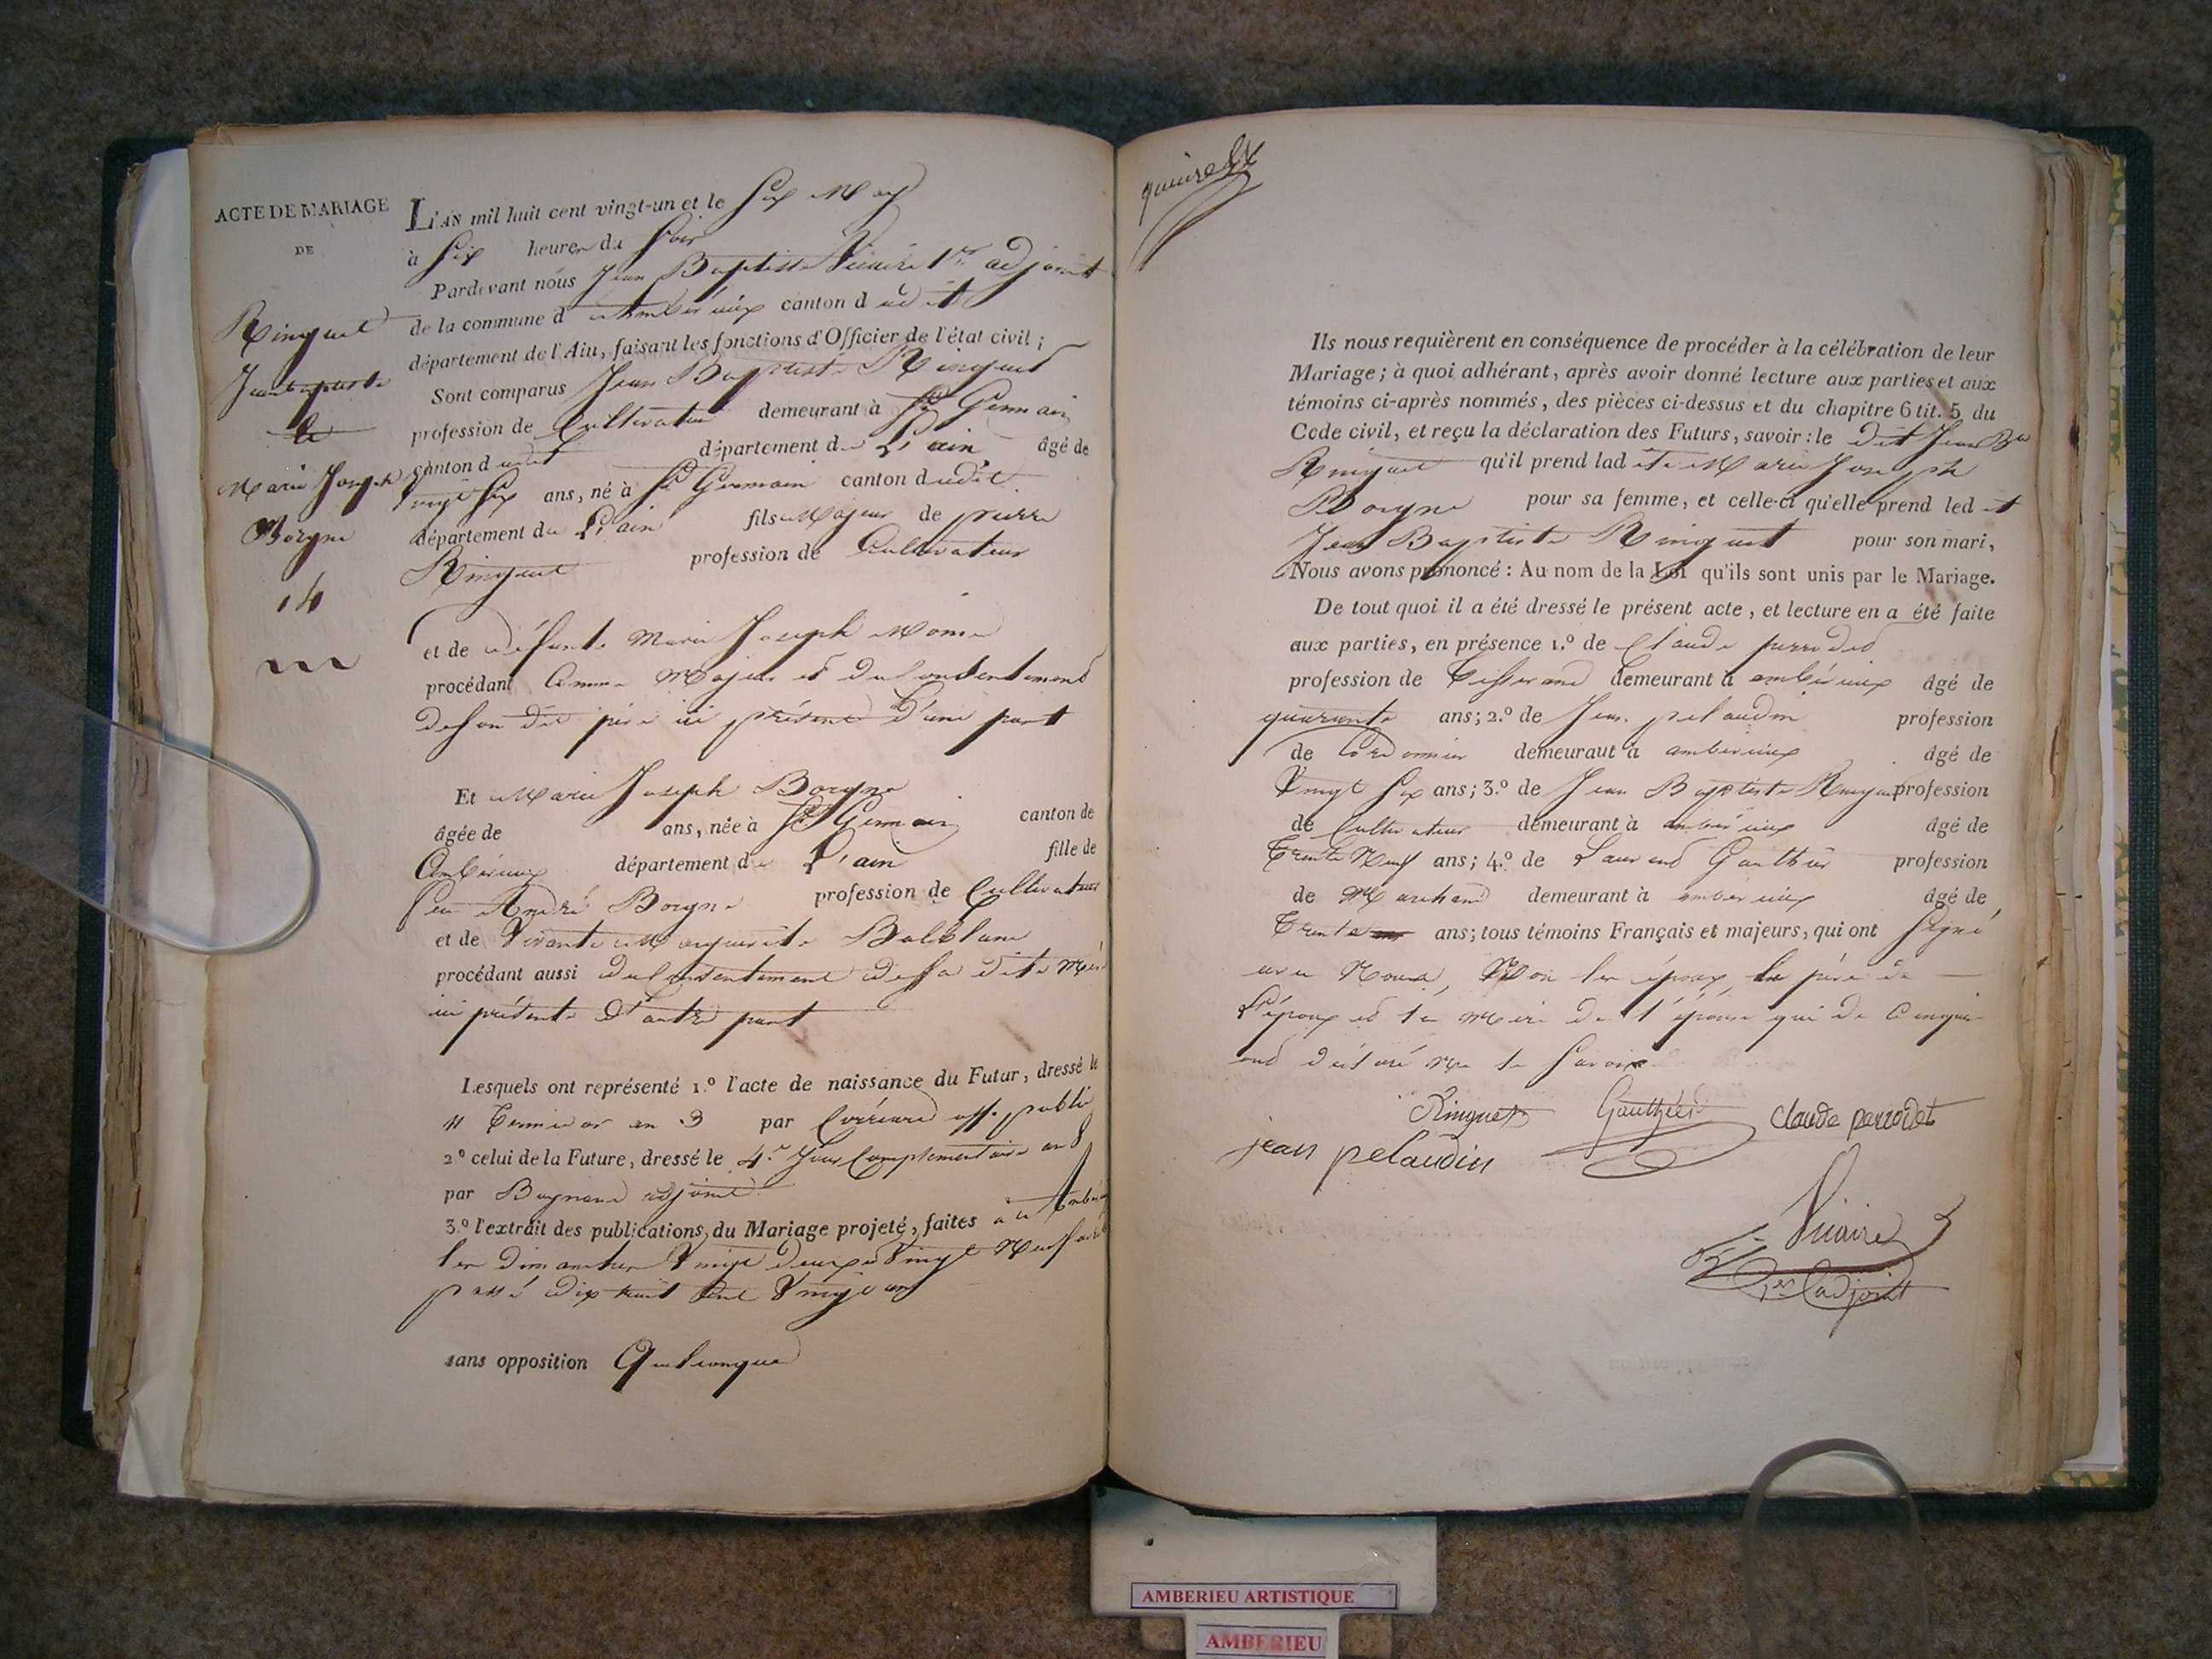 ACTE DE MARIAGE
DE
Ringuet
Jean baptiste
et
Marie Joseph
Borgne
14
L'AN mil huit cent vingt-un et le Six May
à Six heures du Soir
Pardevant nous Jean Baptiste Vicaire 1er adjoint
de la commune d'Ambérieux canton dudit
département de l'Ain, faisant les fonctions d'Officier de l'état civil ;
Sont comparus Jean Baptiste Ringuet
profession de Cultivateur demeurant à St Germain
canton dudit département de L'ain âgé de
Vingt Six ans, né à St Germain canton dudit
département de L'ain fils Majeur de pierre
Ringuet profession de Cultivateur
et de défunte Marie Joseph
procédant Comme Majeur et du Consentement
de son dit père ici présent D'une part
Et Marie Joseph Borgne
âgée de ans, née à St Germain canton de
Ambérieux département de L'ain fille de
feu André Borgne profession de Cultivateur
et de Vivante Marguerite
procédant aussi du Consentement de sa dite Mère
ici présente D'autre part
Lesquels ont représenté 1.º l'acte de naissance du Futur, dressé le
11 Termidor an 3 par off. public
2.º celui de la Future, dressé le 4e Jour Complementaire an 8
par adjoint
3.º l'extrait des publications du Mariage projeté, faites
les dimanches Vingt deux et Vingt Neuf
passé dix huit Cent Vingt un
sans opposition Quelconque
Ils nous requièrent en conséquence de procéder à la célébration de leur
Mariage ; à quoi adhérant, après avoir donné lecture aux parties et aux
témoins ci-après nommés, des pièces ci-dessus et du chapitre 6 tit. 5 du
Code civil, et reçu la déclaration des Futurs, savoir : le dit Jean Bte
Ringuet qu'il prend ladite Marie Joseph
Borgne pour sa femme, et celle-ci qu'elle prend ledit
Jean Baptiste Ringuet pour son mari,
Nous avons prononcé : Au nom de la Loi qu'ils sont unis par le Mariage.
De tout quoi il a été dressé le présent acte, et lecture en a été faite
aux parties, en présence 1.º de Claude perrodet
profession de Tisserand demeurant à ambérieux âgé de
quarante ans ; 2.º de Jean pelaudin profession
de Cordonnier demeurant à ambérieux âgé de
Vingt Six ans ; 3.º de Jean Baptiste Ringuet profession
de Cultivateur demeurant à ambérieux âgé de
Trente Neuf ans ; 4.º de Laurend Gauthier profession
de Marchand demeurant à ambérieux âgé de
Trente ans ; tous témoins Français et majeurs, qui ont Signé
avec Nous, Non les époux, le père de
L'époux et la Mère de l'épouse qui de ce enquis
ont déclaré Ne le Savoir
Ringuet Gauthier Claude perrodet
jean pelaudin
Vicaire
1er adjoint
AMBERIEU ARTISTIQUE
AMBERIEU